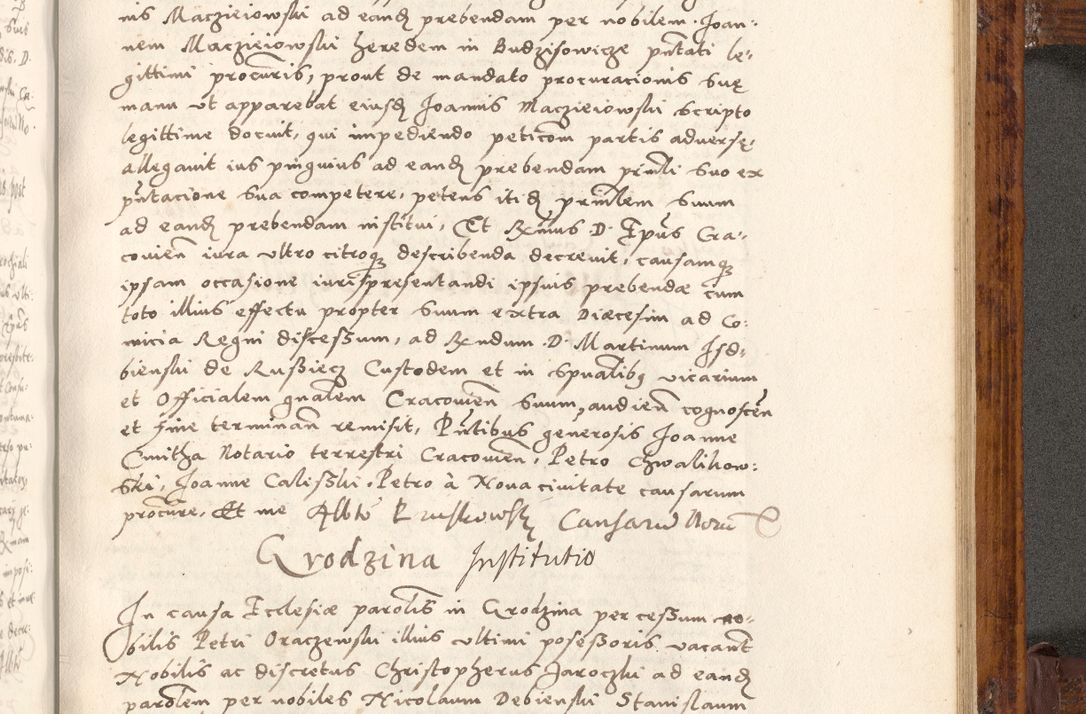 nis Maczieiowski ad eand prebendam per nobilem Joan-
nem Maczieiowski heredem in Budzisowicze pntati le-
gittimi procuris, prout de mandato procuracionis suę
manu ut apparebat eiusd Joannis Maczieiowski scripto
legittime docuit, qui impediendo peticom partis adversę,
allegavit ius pinguius ad eand prebendam prnli suo ex
pntacione sua competere, petens itid prnlem suum
ad eand prebendam institui, Et Rmus D. Epus Cra-
covien iura ultro citroq describenda decrevit, causamq
ipsam occasione iurispresentandi ipsius prebendæ cum
toto illius effectu propter suum extra Diœcesim ad Co-
micia Regni discessum, ad Rndum D. Martinum Isd-
bienski de Russiecz Custodem et in spualibq vicarium
et Officialem gnalem Cracovien suum, audien cognoscen
et fine terminan remisit, Pntibus generosis Joanne
Cmitha Notario terrestri Cracovien, Petro Chwalikow-
ski, Joanne Calisski, Petro à Nova civitate causarum
procure, Et me Albto Kruskowskj Causaru Noru
Grodzina Institutio
In causa Ecclesiæ parolis in Grodzina per cessum no-
bilis Petri Oraczewski illius ultimi posessoris vacant
Nobilis ac discretus Christopherus Jaroczki ad eand
parolem per nobiles Nicolaum Debienski Stanislaum